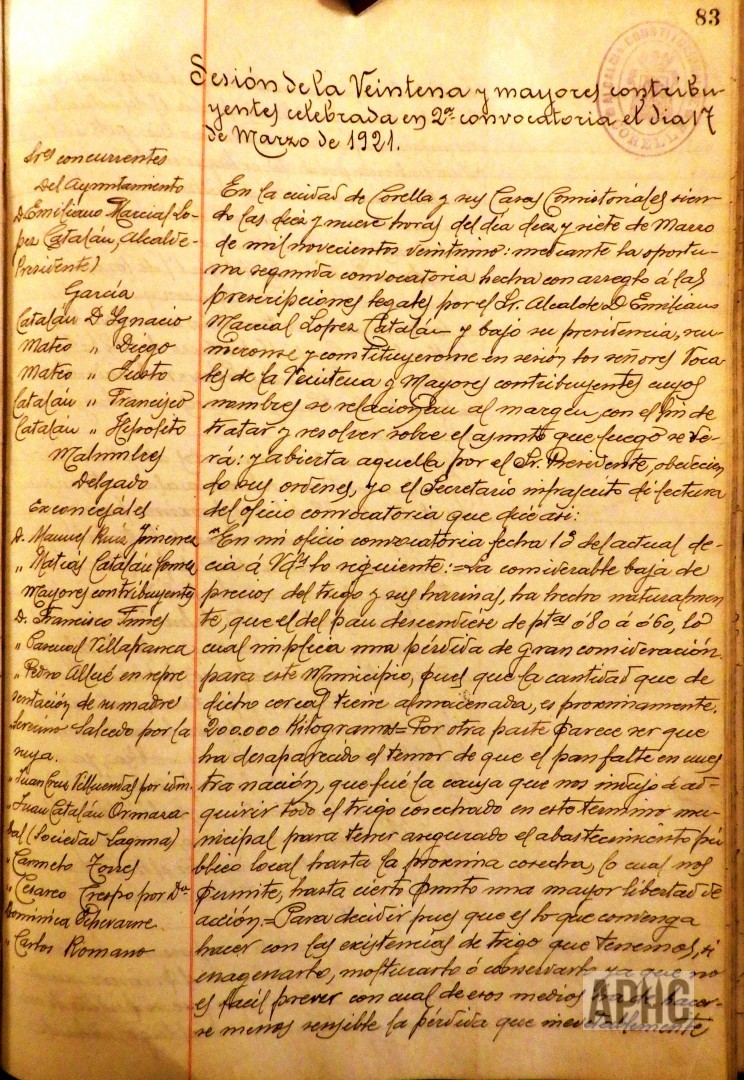 83
Sesión de la Veintena y mayores contribu-
yentes celebrada en 2ª convocatoria el dia 17
de Marzo de 1921.
Sres concurrentes
Del Ayuntamiento
D. Emiliano Marcial Lo-
pez Catalán, Alcalde-
Presidente)
García
Catalán D. Ignacio
Mateo " Diego
Mateo " Justo
Catalán " Francisco
Catalán " Hipólito
Malumbres
Delgado
Exconcejales
D. Manuel Ruiz Jimenez
" Matías Catalán Gomez
Mayores contribuyentes
D. Francisco
" Pascual Villafranca
" Pedro Allué en repre
sentación de su madre
Salcedo por la
suya.
" Juan Cruz Villuendas por idm.
" Juan Catalán Ormaza-
bal (Sociedad Laguna)
" Carmelo Torres
" Cesareo Crespo por Dª
Dominica Echevarne
" Carlos Romano
En la ciudad de Corella y sus Casas Consistoriales sien-
do las diez y nueve horas del día diez y siete de Marzo
de mil novecientos veintiuno: mediante la oportu-
na segunda convocatoria hecha con arreglo á las
prescripciones legales por el Sr. Alcalde D. Emiliano
Marcial Lopez Catalán y bajo su presidencia, reu-
nieronse y constituyeronse en sesión los señores Voca-
les de la Veintena y Mayores contribuyentes cuyos
nombres se relacionan al margen, con el fin de
tratar y resolver sobre el asunto que luego se ve-
rá: y abierta aquella por el Sr. Presidente, obedecien
do sus ordenes, yo el Secretario infrascrito di lectura
del oficio convocatoria que dice así:
"En mi oficio convocatoria fecha 1º del actual de-
cia á Vds lo siguiente:=La considerable baja de
precios del trigo y sus harinas, ha hecho naturalmen
te, que el del pan descendiese de ptas 0'80 a 0'60, lo
cual implica una pérdida de gran consideración
para este Municipio, pues que la cantidad que de
dicho cereal tiene almacenada, es proximamente.
200.000 Kilogramos=Por otra parte parece ser que
ha desaparecido el temor de que el pan falte en nues
tra nación, que fué la causa que nos indujo á ad-
quirir todo el trigo cosechado en este termino mu-
nicipal para tener asegurado el abastecimiento pú-
blico local hasta la proxima cosecha, lo cual nos
permite, hasta cierto punto una mayor libertad de
acción.=Para decidir pues que es lo que convenga
hacer con las existencias de trigo que tenemos, si
enagenarlo, molturarlo ó conservarlo ya que no
es facil prever con cual de esos medios ha de hacer-
se menos sensible la pérdida que inevitablemente
APHC